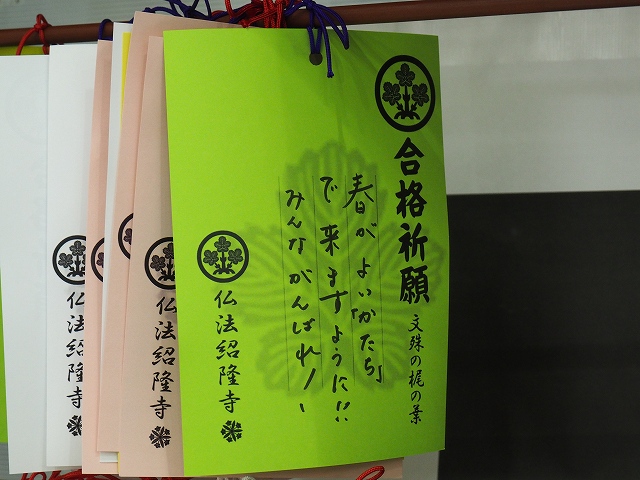 合格祈願
文殊の梶の葉
春がよい「かたち」
で来ますように!!
みんながんばれ!
仏法紹隆寺
仏法紹隆寺
仏法紹隆寺